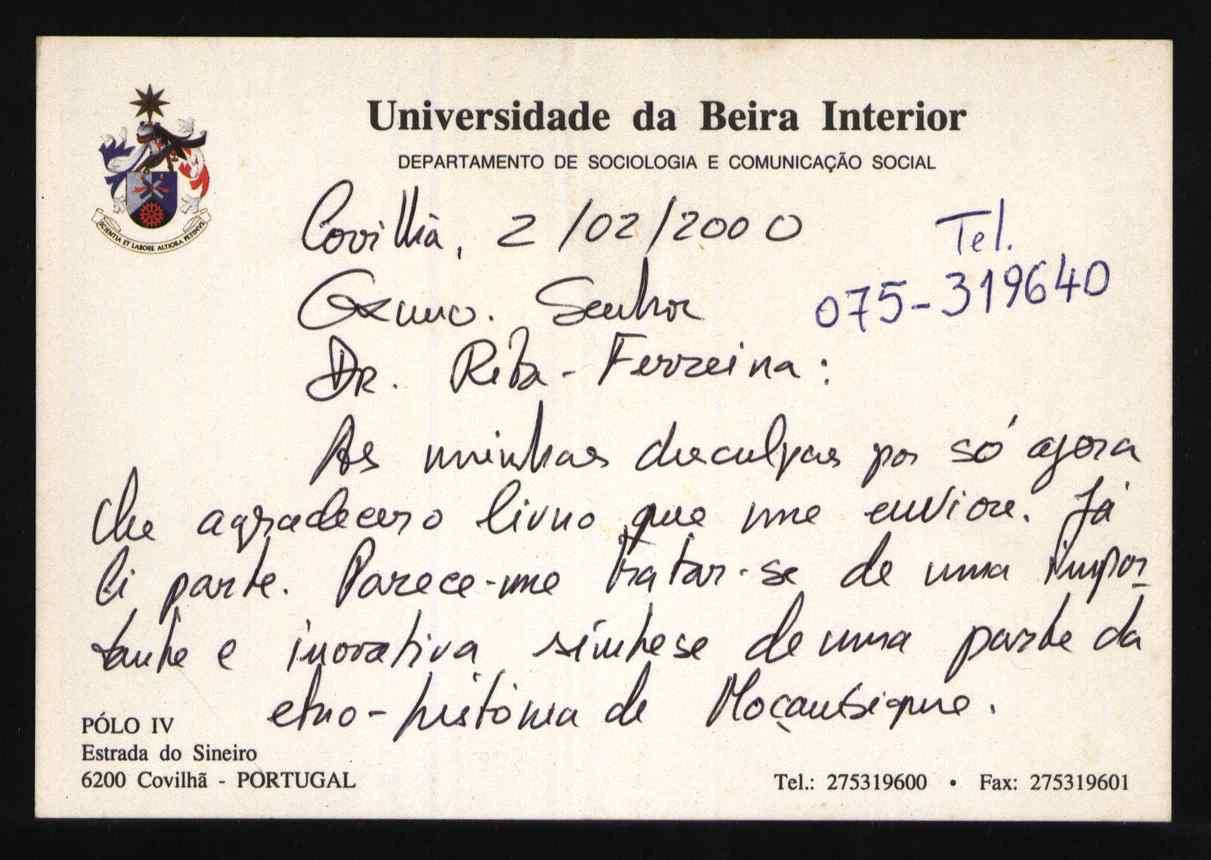 Universidade da Beira Interior
DEPARTAMENTO DE SOCIOLOGIA E COMUNICAÇÃO SOCIAL
SCIENTIA ET LABORE ALTIORA PETIMUS
Covilhã, 2/02/2000
Tel.
075-319640
Exmo. Senhor
Dr. Rita-Ferreira:
As minhas desculpas por só agora
lhe agradecer o livro que me enviou. Já
li parte. Parece-me tratar-se de uma impor-
tante e inovativa síntese de uma parte da
etno-história de Moçambique.
PÓLO IV
Estrada do Sineiro
6200 Covilhã - PORTUGAL
Tel.: 275319600 • Fax: 275319601